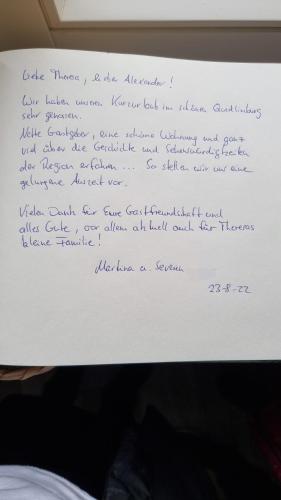 Liebe Theresa, lieber Alexander!
Wir haben unseren Kurzurlaub im schönen Quedlinburg
sehr genossen.
Nette Gastgeber, eine schöne Wohnung und ganz
viel über die Geschichte und Sehenswürdigkeiten
der Region erfahren ... So stellen wir uns eine
gelungene Auszeit vor.
Vielen Dank für Eure Gastfreundschaft und
alles Gute, vor allem aktuell auch für Theresas
kleine Familie!
Martina u. Severin
23-8-22